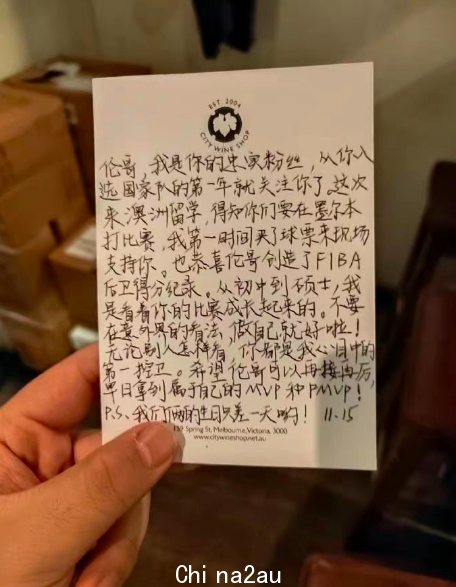 EST. 2004
CITY WINE SHOP
伦哥，我是你的忠实粉丝，从你入
选国家队的第一年就关注你了。这次
来澳洲留学，得知你们要在墨尔本
打比赛，我第一时间买了球票来现场
支持你。也恭喜伦哥创造了FIBA
后卫得分纪录。从初中到硕士，我
是看着你的比赛成长起来的。不要
在意外界的看法，做自己就好啦！
无论别人怎样看，你都是我心目中的
第一控卫。希望伦哥可以再接再厉，
早日拿到属于自己的MVP和FMVP！
P.S.我们俩的生日只差一天哟！ 11.15
159 Spring St, Melbourne, Victoria, 3000
www.citywineshop.net.au
Chi na2au